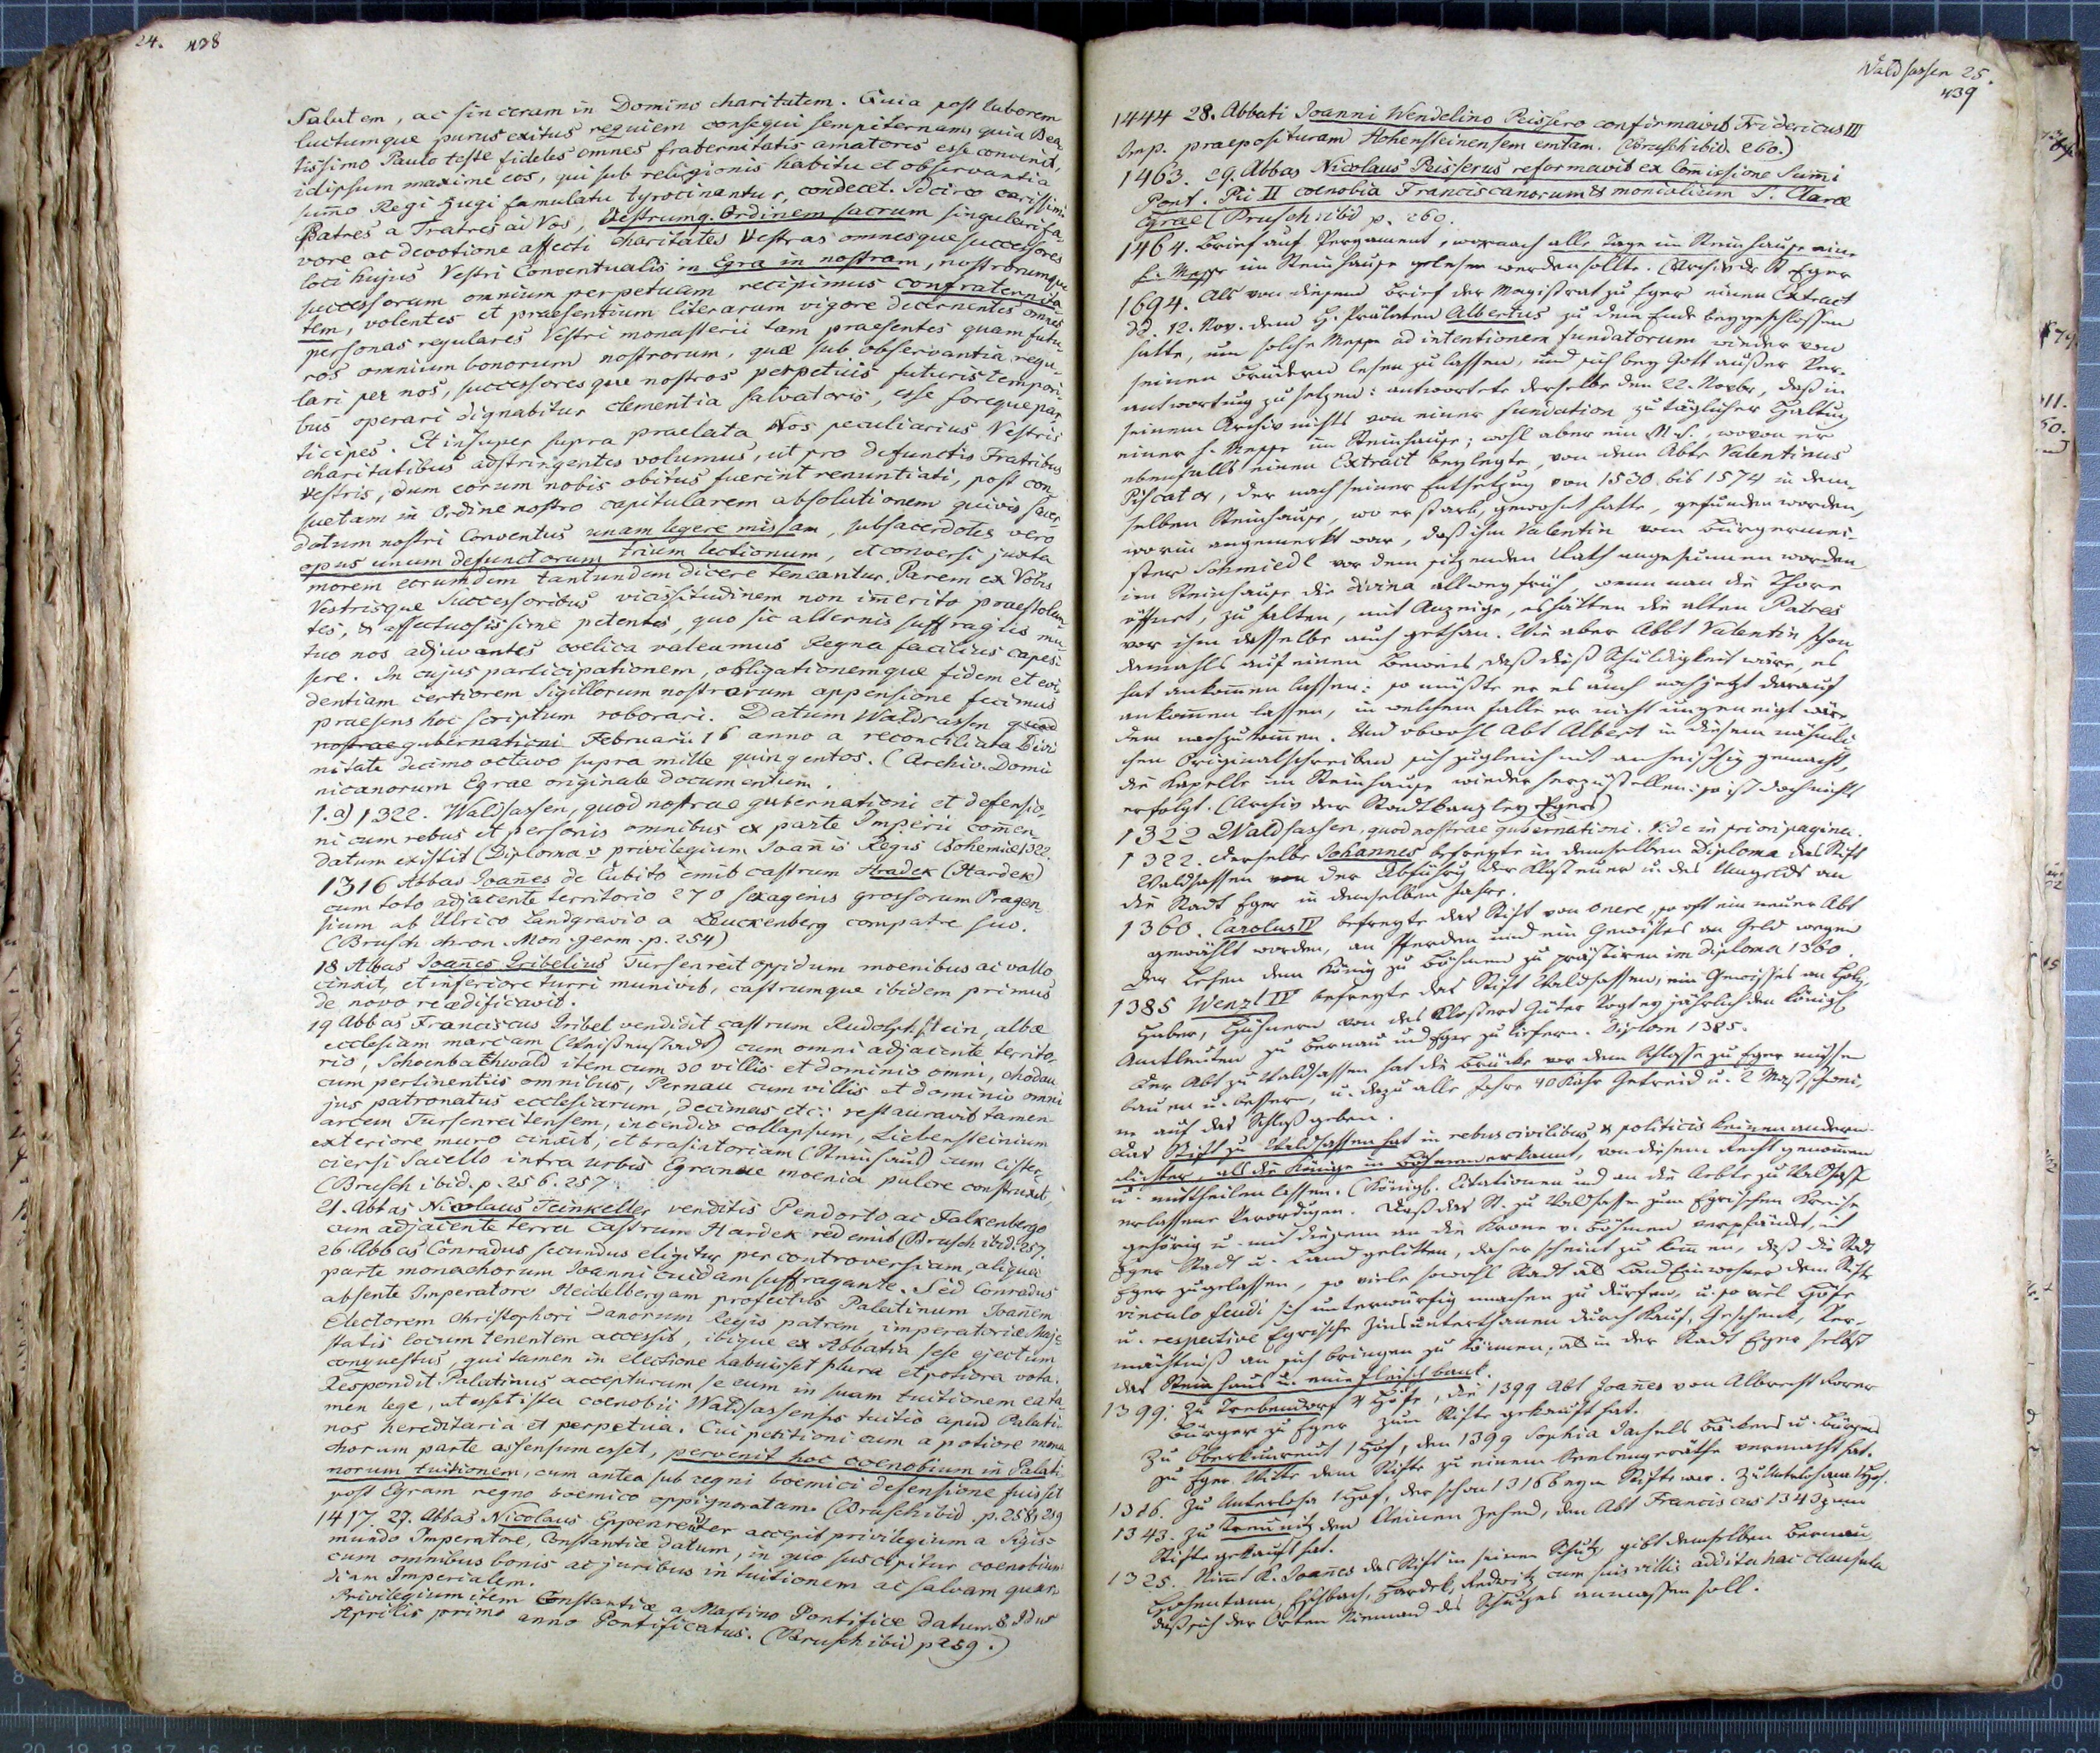 24. 438
Salutem, ac sinceram in Domino charitatem. Quia post laborem
luctumque purus exitus requiem consequi sempiternam, quia Bea-
tissimo Paulo teste fideles omnes fraternitatis amatores esse convenit,
idipsum maxime eos, qui sub religionis habitu et observantia
sumo Regi Jugi famulatu tyrocinantur, condecet. Idcirco carissimi
Patres a Fratres ad Vos, Vestrumq. Ordinem sacrum singulari fa-
vore ac devotione affecti charitates Vestras omnesque successores
loci hujus Vestri Conventualis in Egra in nostram, nostrorumque
successorum omnium perpetuam recipimus confraternita-
tem, volentes et praesentium literarum vigore decernentes omnes
personas regulares Vestri monasterii tam praesentes quam futu-
ros omnium bonorum nostrorum, quae sub observantia regu-
lari per nos, successoresque nostros perpetuis futuris tempori-
bus operari dignabitur clementia salvatoris, esse forequepar-
ticipes. Et insuper supra praelata Nos peculiarius Vestris
charitatibus adstringentes volumus, ut pro defunctis Fratribus
Vestris, dum eorum nobis obitus fuerint renuntiati, post con-
suetam in Ordine nostro capitularem absolutionem quivis sacer-
dotum nostri Conventus unam legere missam, subsacerdotes vero
opus unum defunctorum trium lectionum, et conversi juxta
morem eorumdem tantundem dicere teneantur. Parem ex Vobis
Vestrisque Successoribus vicissitudinem non imerito praestolan-
tes, & affectuosissime petentes, quo sic alternis suffragiis mu-
tuo nos adjuvantes coelica valeamus Regna facilius capes-
sere. In cujus participationem, obligationemque fidem et evi-
dentiam certiorem Sigillorum nostrorum appensione fecimus
praesens hoc scriptum roborari. Datum Waldsassen quod
nostrae gubernationi Februarii 16 anno a reconciliata Divi
nitate decimo octavo supra mille quingentos. (Archiv. Domi
nicanorum Egrae originale documentum.
1. a) 1322. Waldsassen, quod nostrae gubernationi et defensio-
ni cum rebus et personis omnibus ex parte Imperii comen-
datum existit (Diploma v privilegium Joanis Regis Bohemiae 1322.
1316 Abbas Joañes de Cubito emit castrum Hradek (Hardek)
cum toto adjacente territorio 270 sexagenis grossorum Pragen-
sium ab Ulrico Landgravio a Leuckenberg compatre suo.
(Brusch chron. Mon. germ. p. 254)
18 Abbas Joañes Gribelius Tursenreit oppidum moenibus ac vallo
cinxit, et inferiore turri munivit, castrumque ibidem primus
de novo reaedificavit.
19 Abbas Franciscus Gribel vendidit castrum Rudolphstein, albae
ecclesiam marcam (Weißenstadt) cum omni adjacente territo-
rio, Schoenbachwald item cum 30 villis et dominio omni, chodau
cum pertinentiis omnibus, Pernau cum villis et dominio omni
jus patronatus ecclesiarum, decimas etc: restauravit tamen
arcem Tursenreitensem, incendio collapsum, Liebensteinium
exteriore muro cinxit, et brasiatoriam (Steinhaus) cum cister-
ciensi Sacello intra urbis Egranae moenia pulcre construxit,
(Brusch ibid. p. 256. 257.
21. Abbas Nicolaus Teinkeller venditis Pendorto ac Falkenbergo
cum adjacente terra castrum Hardek redemit (Brusch ibid. 257.
26. Abbas Conradus secundus eligitur per controversiam, aliqua
parte monachorum Joanni cuidam suffragante. Sed Conradus
absente Imperatore Heidelbergam profectus Palatinum Joañem
Electorem Christophori Danorum Regis patrem, imperatoriae Maje-
statis locum tenentem accessit, ibique ex Abbatia sese ejectum
conquestus, qui tamen in electione habuisset plura et potiora vota.
Respondit Palatinus accepturum se eum in suam tuitionem ea ta-
men lege, ut esset ista coenobii Waldsassensis tuitio apud Palati-
nos hereditaria et perpetua. Cui petitioni cum a potiore mona
chorum parte assensum esset, pervenit hoc coenobium in Palati-
norum tuitionem, cum antea sub regni boemici defensione fuisset
post Egram regno boemico oppignoratam. (Brusch ibid. p. 258, 259
1417. 27. Abbas Nicolaus Eppenreuter accepit privilegium a Sigis-
mundo Imperatore, Constantiae datum, in quo suscipitur coenobium
cum omnibus bonis ac juribus in tuitionem ac salvam quar-
diam Imperialem.
Privilegium item Constantiae a Martino Pontifice datum 8 Idus
Aprilis primo anno Pontificatus. (Brusch ibid p 259.)
Waldsassen 25.
439
1444 28. Abbati Joanni Wendelino Peissero confirmavit Fridericus III
Imp. praeposituram Hohensteinensem emtam. (Brusch ibid. 260.)
1463. 29. Abbas Nicolaus Peisserus reformavit ex Comissione Sumi
Pont. Pii II coenobia Franciscanorum & monialium S. Clarae
Egrae (Brusch ibid p. 260.
1464. Brief auf Pergament, wornach alle Tage im Steinhause eine
h. Messe im Steinhause gelesen werden sollte. (Archiv der St Eger
1694. Als von diesem Brief der Magistrat zu Eger einen Extract
dd. 12. Nov. dem H. Prälaten Albertus zu dem Ende beygeschlossen
hatte, um solche Messe ad intentionem fundatorum wieder von
seinen Brüdern lesen zu lassen, und sich bey Gott außer Ver-
antwortung zu setzen: antwortete derselbe den 22. Novbr, daß in
seinem Archiv nichts von einer Fundation zu täglicher Haltung
einer h. Messe im Steinhause; wohl aber ein M.S., wovon er
ebenfalls einen Extract beylegte, von dem Abte Valentinus
Piscator, der nach seiner Entsetzung von 1530. bis 1574 in dem-
selben Steinhause, wo er starb, gewohnt hatte, gefunden worden,
worin angemerkt war, daß ihm Valentin vom Bürgermei-
ster Schmiedl vor dem sitzenden Rath angesunnen worden
im Steinhause die Divina allweg früh, wenn man die Thore
öffnet, zu halten, mit Anzeige, es hätten die alten Patres
vor ihm dasselbe auch gethan. Wie aber Abbt Valentin schon
damahls auf einen Beweis, daß dieß Schuldigkeit wäre, es
hat ankomen lassen: so müßte er es auch noch jetzt darauf
ankomen lassen, in welchem Falle er nicht ungeneigt wäre
dem nachzukomen. Und obwohl Abt Albert in diesem nähmli-
chen Originalschreiben sich zugleich mit anheischig gemacht,
die Kapelle im Steinhause wieder herzustellen: so ist doch nichts
erfolgt. (Archiv der Stadtkanzley Eger)
1322 Waldsassen, quod nostrae gubernationi. Vide in priori pagina.
1322. Derselbe Johannes befreyte in demselben Diploma das Stift
Waldsassen von der Abführung der Klosteuer u. des Umgelds an
die Stadt Eger in demselben Jahre.
1360. Carolus IV befreyte das Stift von onere, so oft ein neuer Abt
gewählt worden, an Pferden und ein Gewisses an Geld wegen
der Lehen dem König zu Böhmen zu prästiren im Diploma 1360
1385 Wenzl IV befreyte das Stift Waldsassen, ein Gewisses an Holz,
Haber, Hühnern von des Klosters Güter Vogtey jährlich den Königl
Amtleuten zu Bernau und Eger zu liefern. Diplom 1385.
Der Abt zu Waldsassen hat die Brücke vor dem Schlosse zu Eger müssen
bauen u. bessern, u. dazu alle Jahre 40 Kahr Getreid u. 2 Mastschwei-
ne auf das Schloß geben.
Das Stift zu Waldsassen hat in rebus civilibus & politicis keinen andern
Richter, als die Könige in Böhmen erkannt, von diesem Recht genomen
u. mittheilen lassen. (Königl. Citationen und an die Aebte zu Waldsass
erlassene Verordngen. Daß das St. zu Waldsassen zum Egrischen Kreise
gehörig u. mit diesem an die Krone v. Böhmen verpfändt, mit
Eger Stadt u. Land gelitten, daher scheint zu komen, daß die Stadt
Eger zugelassen, so viele sowohl Stadt als Land Einwohner dem Stifte
vinculo feudi sich unterwürfig machen zu dürfen, u. so viel Höfe
u. respective Egrische Zinsunterthanen durch Kauf, Geschenk, Ver-
mächtniß an sich bringen zu können, als in der Stadt Eger selbst
das Steinhaus u. eine Fleischbank.
1399. Zu Trebendorf 4 Höfe, die 1399 Abt Joañes von Albrecht Forer
Bürger zu Eger zum Stifte gekauft hat.
Zu Oberkunreut 1 Hof, den 1399 Sophia Bäckers u. Bürgers
zu Eger Witwe dem Stifte zu einem Seelengeräthe vermacht hat.
1316. Zu Unterlosa 1 Hof, der schon 1316 beym Stifte war. Zu Unterlohma 1 Hof.
1343. Zu Kreunitz den kleinen Zehend, den Abt Franciscus 1343 zum
Stifte gekauft hat.
1325. Nimt K. Joañes das Stift in seinen Schutz, gibt demselben Bernau,
Hohentann, Eschbach, Hardek, Redwitz cum suis villis addita hac clausula
daß sich der Orten Niemand des Schutzes anmassen soll.